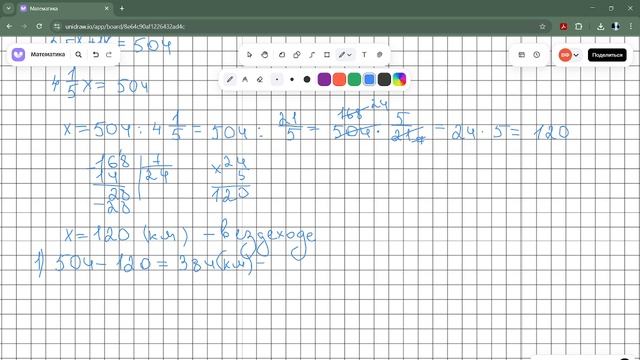 Математика
unidraw.io/app/board/8e64c90af1226432ad4c
Математика
Поделиться
= 504
4 1/5 x = 504
x = 504 : 4 1/5 = 504 : 21/5 = 504 · 5/21 = 24 · 5 = 120
168 24
-168 | 7
14 | 24
-28
-28
x 24
5
120
x = 120 (км) - вездеходе
1) 504 - 120 = 384 (км) -